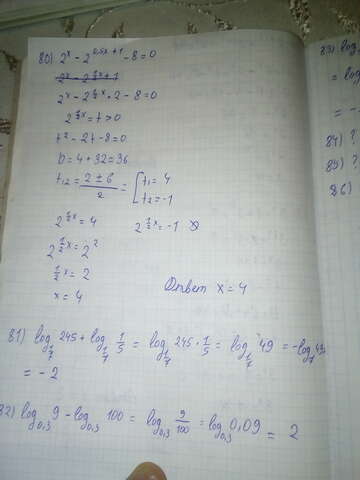 80) 2^x - 2^{0,5x+1} - 8 = 0
2^x - 2^{1/2 x} · 2 - 8 = 0
2^{1/2 x} = t > 0
t² - 2t - 8 = 0
D = 4 + 32 = 36
t₁,₂ = (2 ± 6)/2 = [ t₁ = 4
t₂ = -1
2^{1/2 x} = 4     2^{1/2 x} = -1 ∅
2^{1/2 x} = 2²
1/2 x = 2
x = 4
Ответ x = 4
81) log_{1/7} 245 + log_{1/7} 1/5 = log_{1/7} 245 · 1/5 = log_{1/7} 49 = -log_7 49
= -2
82) log_{0,3} 9 - log_{0,3} 100 = log_{0,3} 9/100 = log_{0,3} 0,09 = 2
83) log
= log
= -
84) ?
85) ?
86)